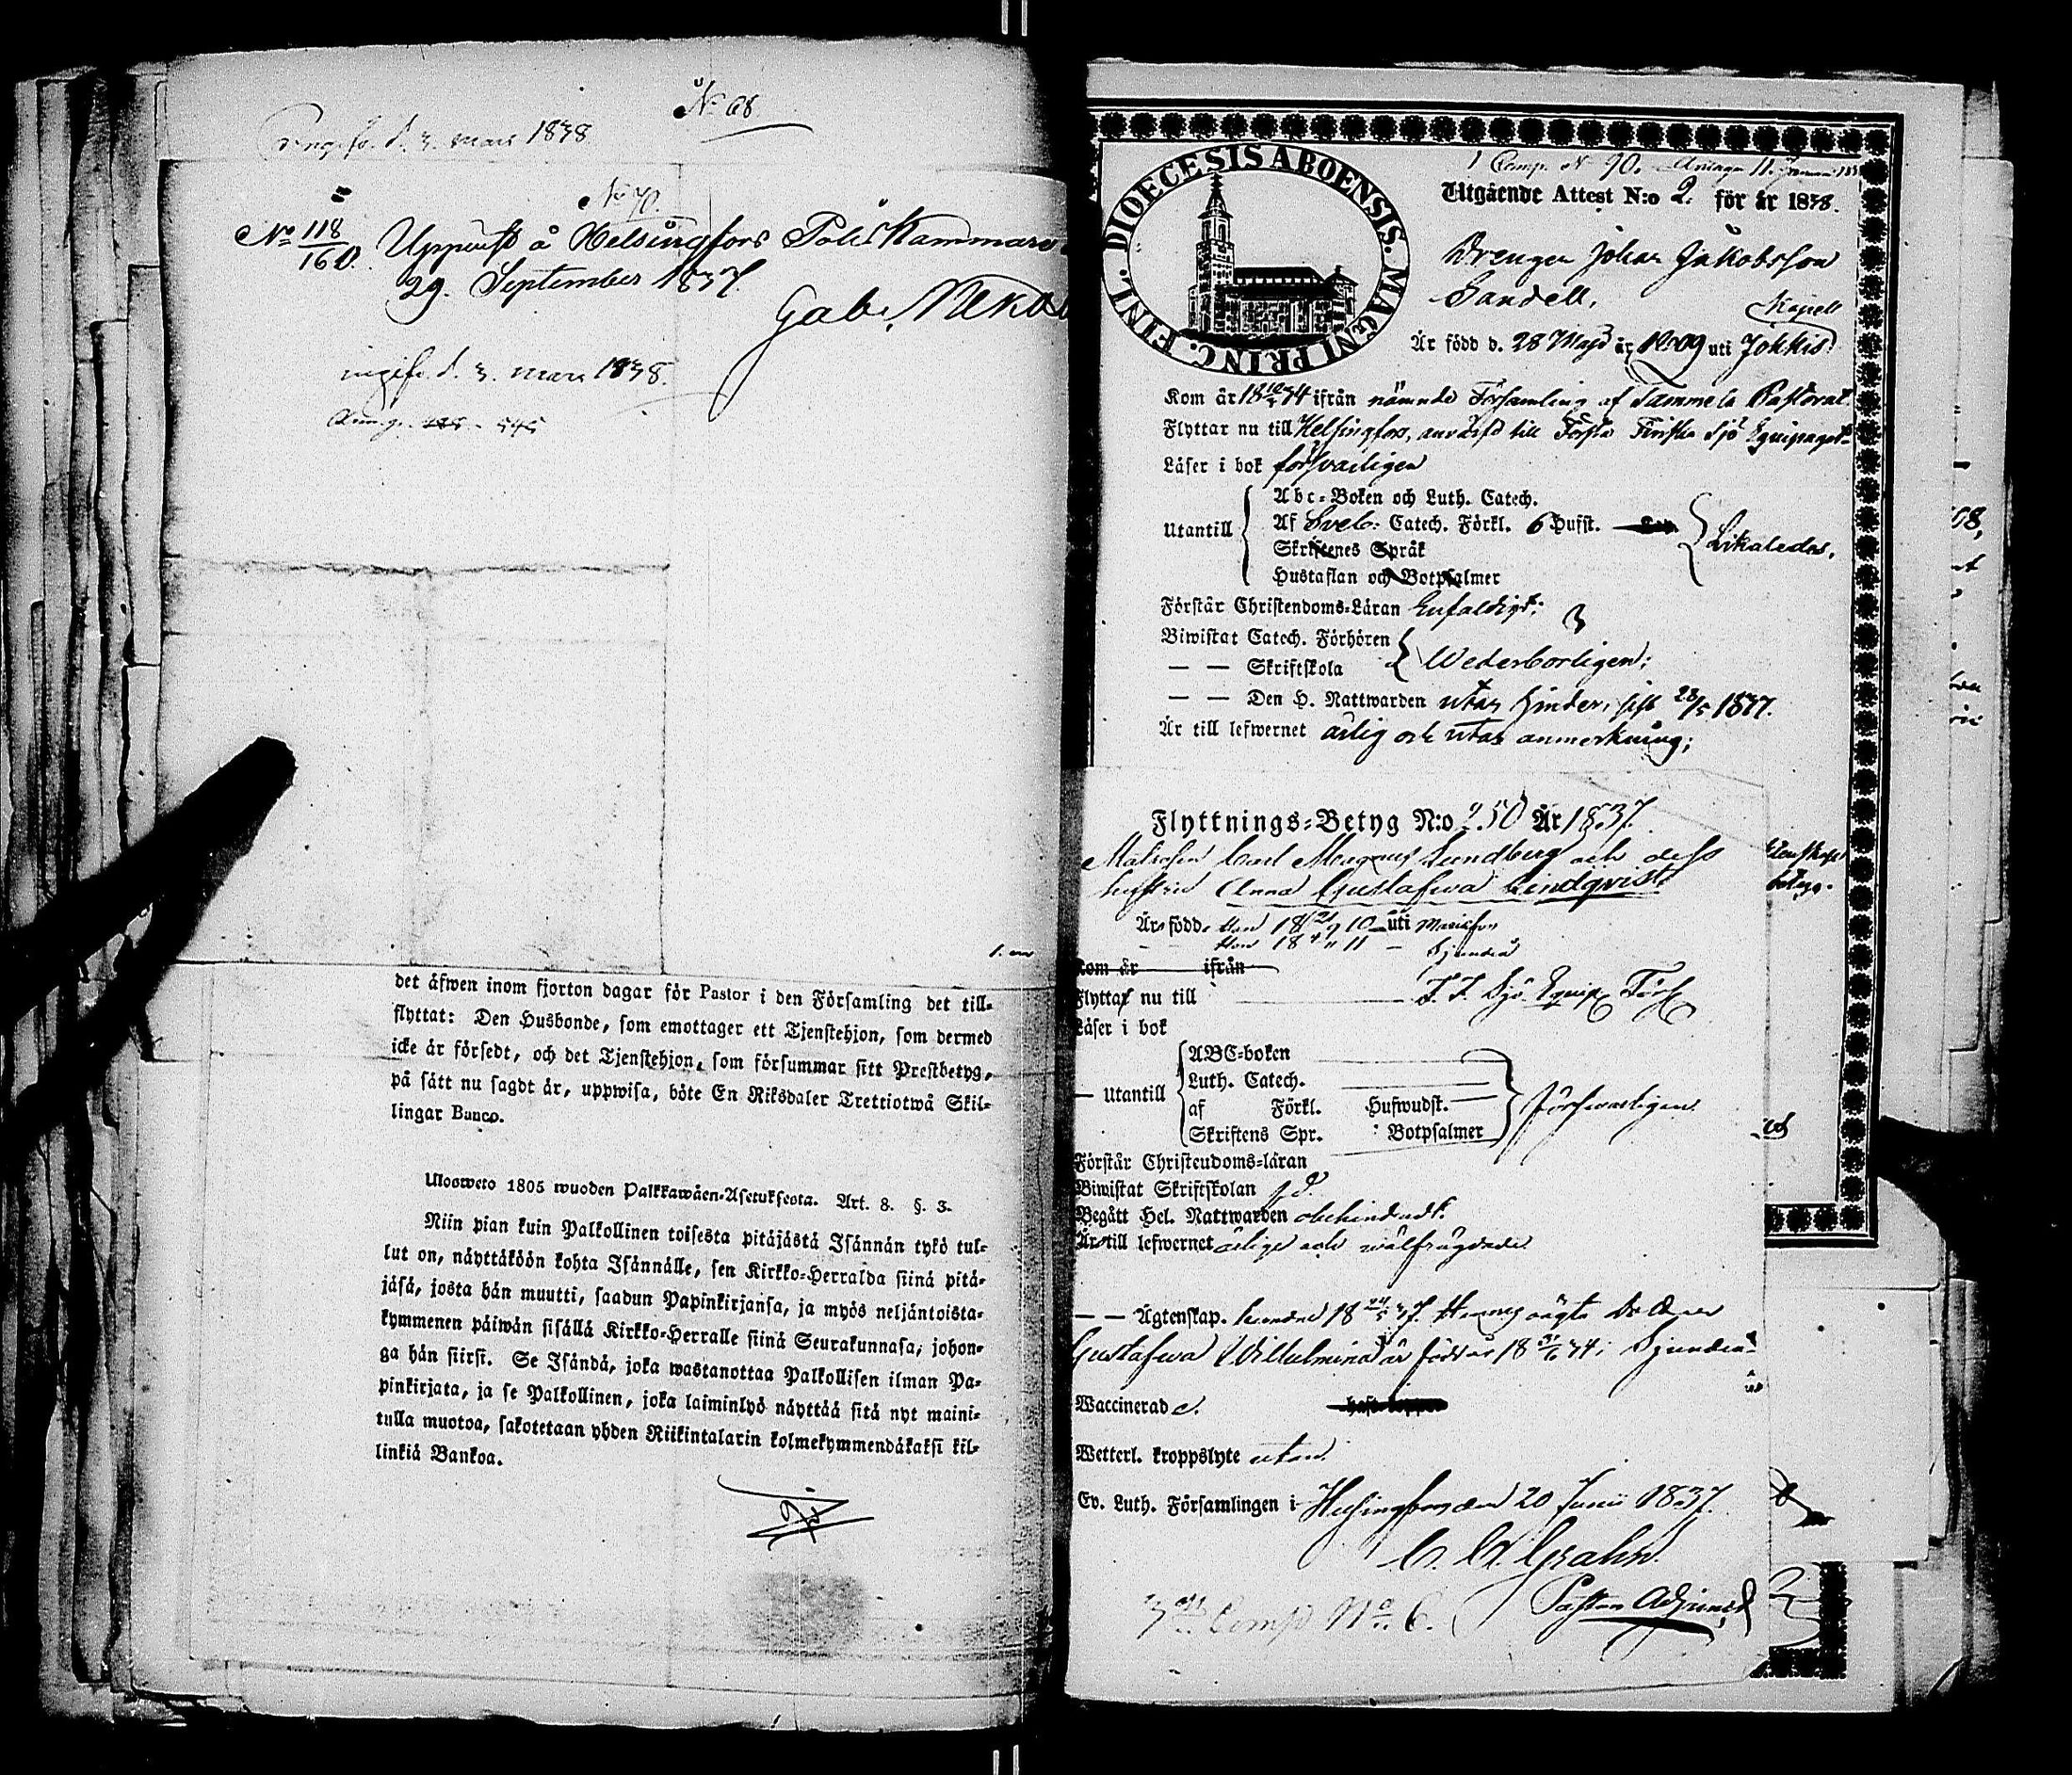 No 68.
ingifv. d. 3. mars 1838.
No 70.
No 118/160. Uppvist å Helsingfors Polis Kammare
29. September 1837.
Gab.
ingifv. d. 3. mars 1838.
det äfwen inom fjorton dagar för Pastor i den Församling det till-
flyttat: Den Husbonde, som emottager ett Tjenstehjon, som dermed
icke är försedt, och det Tjenstehjon, som försummar sitt Prestbetyg,
på sätt nu sagdt är, uppwisa, böte En Riksdaler Trettiotwå Skil-
lingar Banco.
Uloswето 1805 wuoden Palkkawäen-Asetuksesta. Art. 8. §. 3.
Niin pian kuin Palkollinen toisesta pitäjästä Isännän tykö tul-
lut on, näyttäköön kohta Isännälle, sen Kirkko-Herralda siinä pitä-
jäsä, josta hän muutti, saadun Papinkirjansa, ja myös neljäntoista-
kymmenen päiwän sisällä Kirkko-Herralle siinä Seurakunnasa, johon-
ga hän siirsi. Se Isändä, joka wastanottaa Palkollisen ilman Pa-
pinkirjata, ja se Palkollinen, joka laiminlyö näyttää sitä nyt maini-
tulla muotoa, sakotetaan yhden Riikintalarin kolmekymmendäkaksi kil-
linkiä Bankoa.
FINL. DIOECESIS ABOENSIS. MAGNI PRINC.
1 Comp. N 90.
Utgående Attest N:o 2. för år 1838.
Drengen Johan Jakobsson
Sandell,
Kapell
Är född d. 28 Maji år 1809 uti Jokkis
Kom år 1834 ifrån nämnde Församling af Tammela Pastorat
Flyttar nu till Helsingfors, anvärfd till Första Finska Sjö Equipaget
Läser i bok försvarligen
Utantill
Abc-Boken och Luth. Catech.
Af Sveb: Catech. Förkl. 6 Hufst.
Skriftenes Språk
Hustaflan och Botpsalmer
Likaledes.
Förstår Christendoms-Läran Enfaldigt;
Biwistat Catech. Förhören
— — Skriftskola
Wederborligen;
— — Den H. Nattwarden utan hinder, sist 28/5 1837.
Är till lefwernet ärlig och utan anmerkning;
Flyttnings-Betyg N:o 250 År 1837.
Matrosen Carl Magnus Lundberg och dess
hustru Anna Gustafwa Lindqvist
Är födde Han 18 21/9 10 uti
Hon 18 4/11 11 — Sjundeå
Kom år ifrån
Flyttar nu till F. F. Sjö Equip. Förs
Läser i bok
— Utantill
ABC-boken
Luth. Catech.
af Förkl. Hufwudst.
Skriftens Spr. Botpsalmer
försvarligen
Förstår Christendoms-läran
Biwistat Skriftskolan
Begått Hel. Nattwarden obehindradt.
Är till lefwernet ärlige och wälfrägdade
— — Ägtenskap.
Gustafwa Wilhelmina är född år 18 31/6 34 i Sjundeå
Waccinerad e.
haft koppor
Wetterl. kroppslyte utan
Ev. Luth. Församlingen i Helsingfors den 20 Junii 1837.
Grahn.
Pastors Adjunct
3dje Comp No 6.